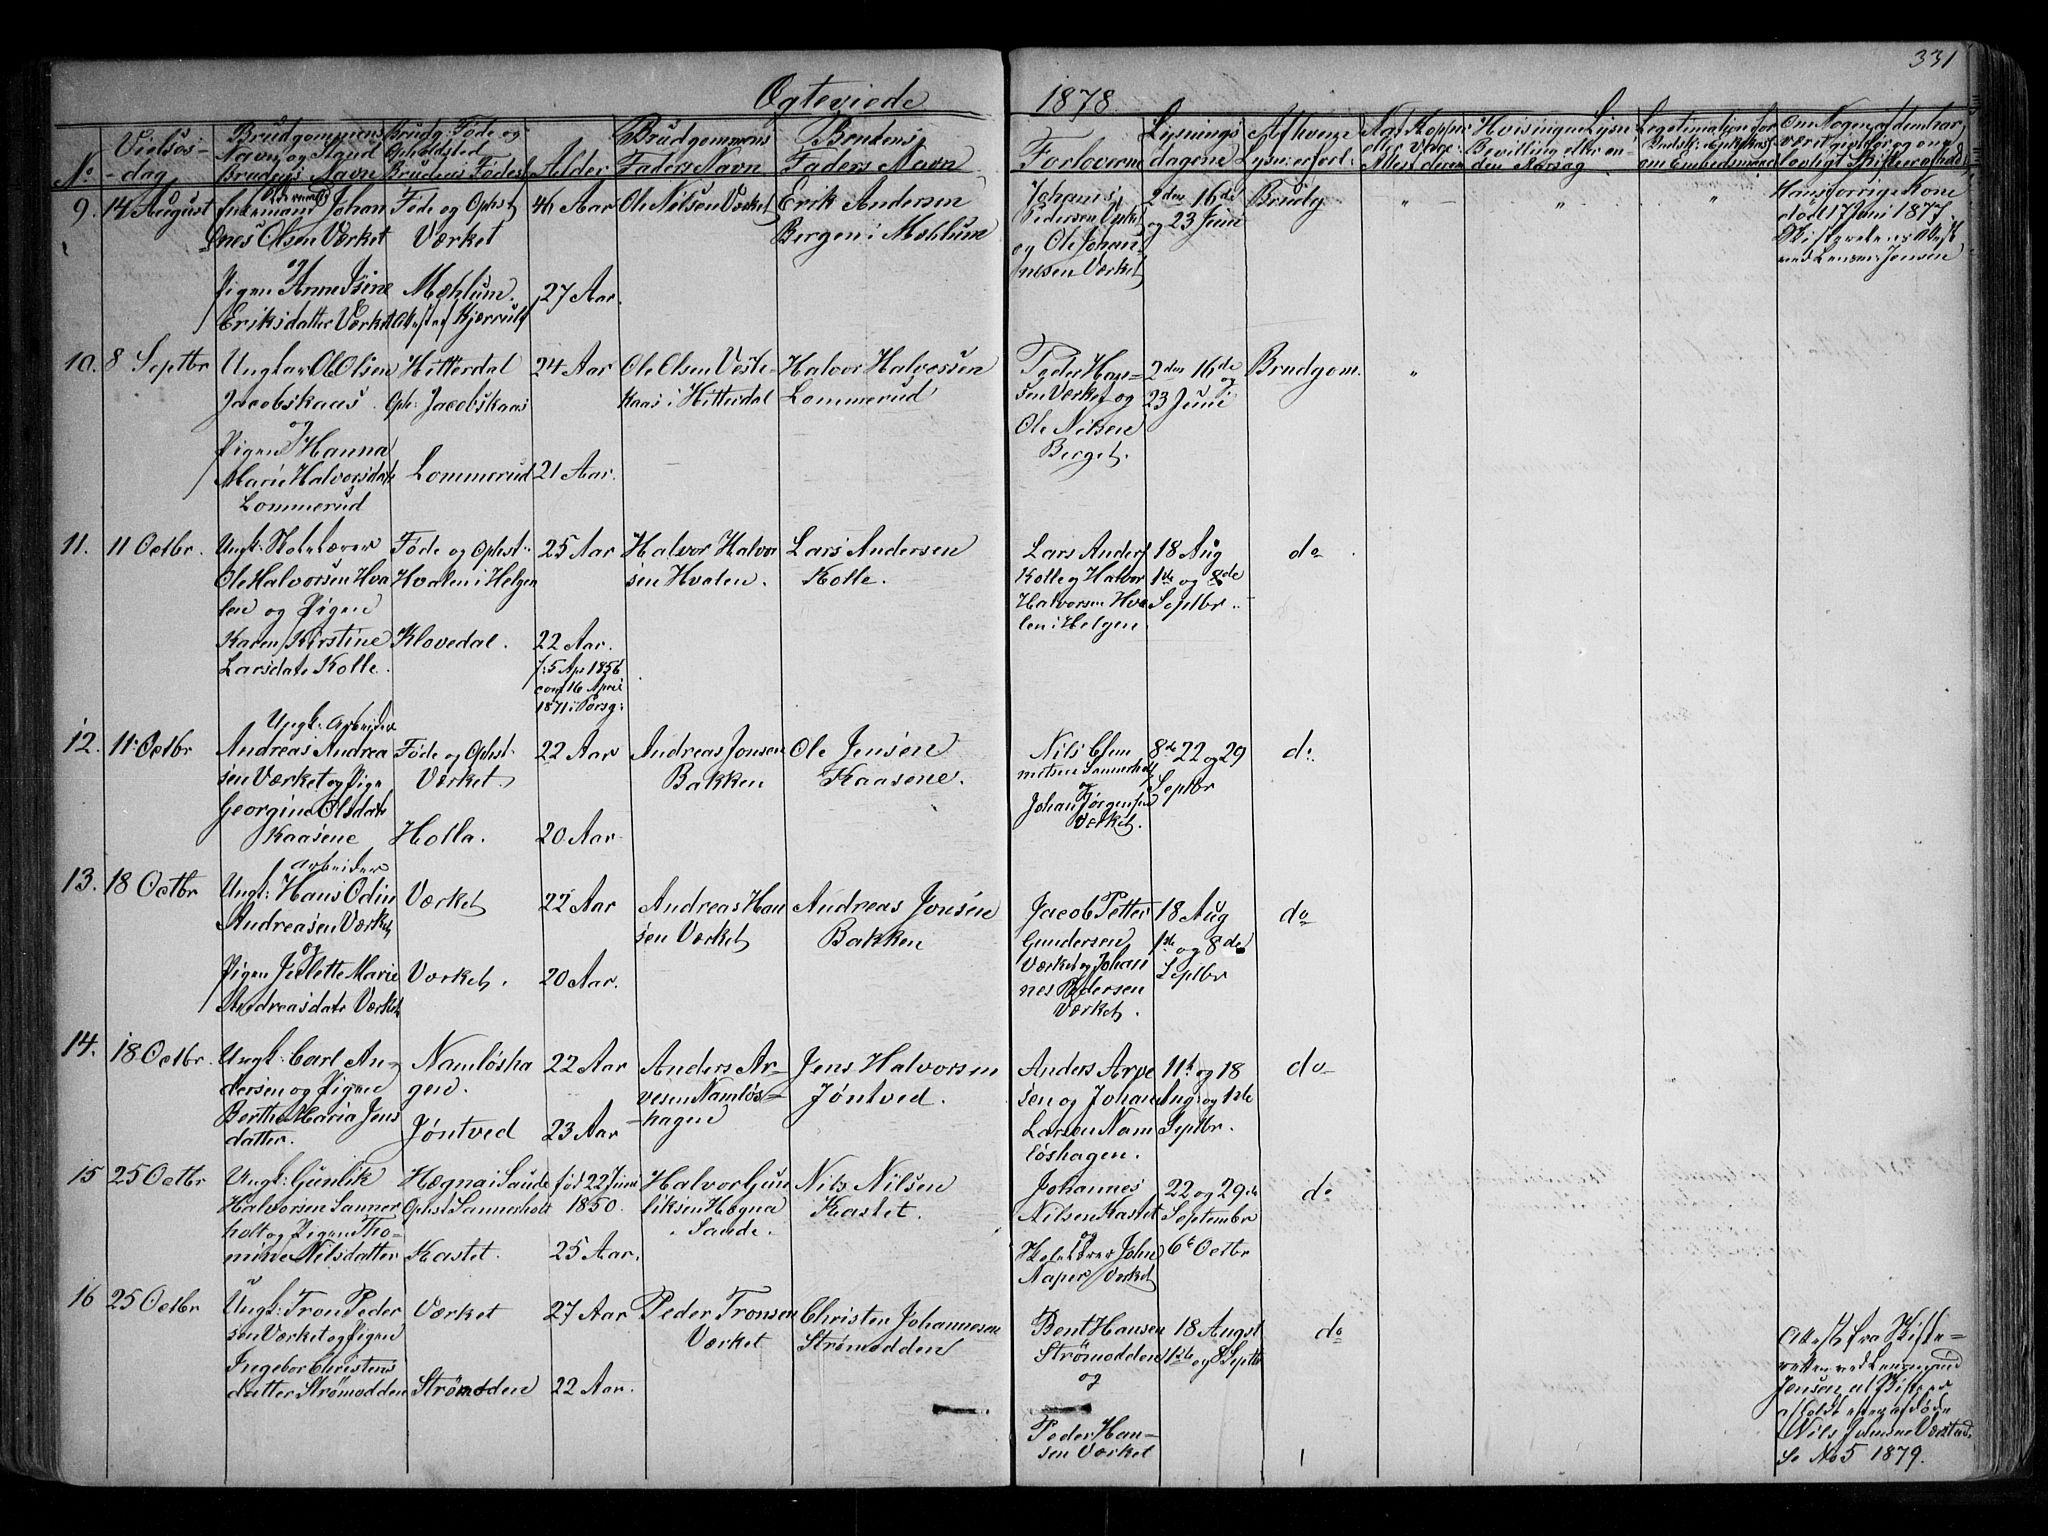 331
Ægteviede
1878.
No
Vielses-
dag
Brudgommens
Navn og Stand
Brudens Navn
Brudg: Føde og
Opholdsted
Brudens Føded
Alder
Brudgommens
Faders Navn
Brudens
Faders Navn
Forloverne
Lysnings
dagene
Afhvem
Lysn: erforl.
9. 14 August
Enkemand Johan
nes Olsen Værket
og
Pigen Anne Isine
Eriksdatter Værket
Føde og Ophst
Værket
Mæhlum.
46 Aar
27 Aar.
Ole Nilsen Værket
Erik Andersen
Bergen i Mæhlum
Johannes
Pedersen Værket
og Ole Johan
nesen Værket
2den 16de
og 23 Juni
Brudg
Hans forrige Kone
død 17 Juni 1877.
ved Lensm: Jensen
10. 8 Septbr
Ungkar Ole Olsen
Jacobskaas
og
Pigen Hanna
Marie Halvorsdatr
Lommerud
Hitterdal
Oph: Jacobskaas
Lommerud
24 Aar
21 Aar.
Ole Olsen Veste-
kaas i Hitterdal
Halvor Halvorsen
Lommerud
Peder Han-
sen Værket og
Ole Nilsen
Berget.
2den 16de
og
23 Juni
Brudgom.
11. 11 Octbr.
Ungk:
Ole Halvorsen Hva
len og Pigen
Karen Kirstine
Larsdatr Kolle.
Føde og Ophst.
Hvalen i Helgen
Klovedal.
25 Aar
22 Aar.
f: 5 Apr 1856
conf 16 April
1871 i Porsg:
Halvor Halvor
sen Hvalen.
Lars Andersen
Kolle.
Lars Anders
Kolle og Halvor
Halvorsen Hva
len i Helgen.
18 Aug
1ste og 8de
Septbr.
do
12. 11 Octbr
Ungk: Arbeider
Andreas Andrea
sen Værket og Pign
Georgine Olsdatr
Kaasene
Føde og Ophst.
Værket.
Holla.
22 Aar
20 Aar
Andreas Jonsen
Bakken
Ole Jensen
Kaasene.
Nils Clem
metsen Sannerholt
og
Johan Jørgensen
Værket.
8de 22 og 29
Septbr
do.
13. 18 Octbr
arbeider
Ungk: Hans Odin
Andreasen Værket
og
Pigen Jullette Marie
Andreasdatr Værket
Værket
Værket.
22 Aar
20 Aar.
Andreas Han
sen Værket
Andreas Jonsen
Bakken
Jacob Petter
Gundersen
Værket og Johan
nes Pedersen
Værket.
18 Aug
1ste og 8de
Septbr
do
14. 18 Octbr.
Ungk: Carl An-
dersen og Pigen
Berthe Maria Jens
datter.
Namløsha
gen.
Jøntved
22 Aar
23 Aar
Anders Ar-
vesen Namløs-
hagen
Jens Halvorsen
Jøntved.
Anders Arve
sen og Johan
Larsen Nam
løshagen.
11te og 18
Aug: og 1ste
Septbr.
do
15 25 Octbr
Ungk: Gunlik
Halvorsen Sanner
holt og Pigen Tho-
mine Nilsdatter
Hægna i Saude
Ophst Sannerholt
Kastet.
fød 22 Juni
1850.
25 Aar.
Halvor Gun
liksen Hægna
i Saude.
Nils Nilsen
Kastet.
Johannes
Nilsen Kastet
og
John
Aaper Værket
22 og 29de
September
6te Octbr
do
16 25 Octbr
Ungk: Tron Peder
sen Værket og Pigen
Ingebor Christens
datter Strømodden
Værket
Strømodden
27 Aar
22 Aar.
Peder Tronsen
Værket
Christen Johannesen
Strømodden
Bent Hansen
Strømodden
og
Peder Han-
sen Værket
18 Augst
1ste og 8 Septbr
do
Attest fra Skifte-
retten ved Lensmand
Jensen at Skifte er
holdt efter afdøde
Nils
Se No 5 1879.